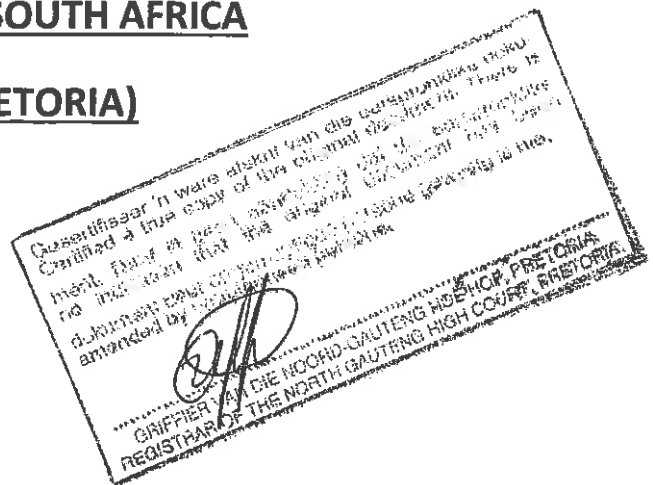 SOUTH AFRICA
ETORIA)
Gesertifiseer 'n ware afskrif van die oorspronklike doku-
Certified a true copy of the original document. There is
ment. Daar is geen aanduiding dat die oorspronklike
no indication that the original document has been
dokument deur
amended by
GRIFFIER VAN DIE NOORD-GAUTENG HOËHOF, PRETORIA
REGISTRAR OF THE NORTH GAUTENG HIGH COURT, PRETORIA